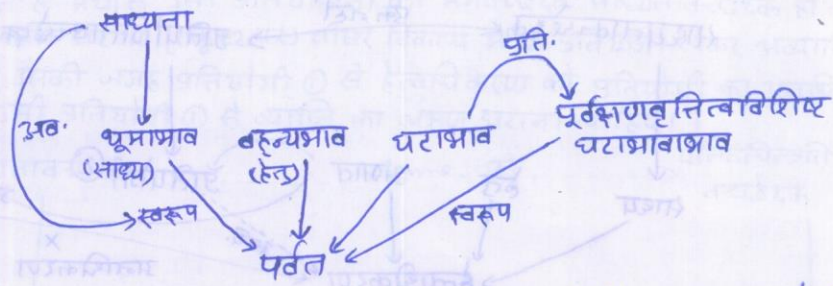 साध्यता
प्रति.
अव.
धूमाभाव
(साध्य)
वह्न्यभाव
(हेतु)
घटाभाव
पूर्वक्षणवृत्तित्वविशिष्ट
घटाभावाभाव
स्वरूप
स्वरूप
पर्वत